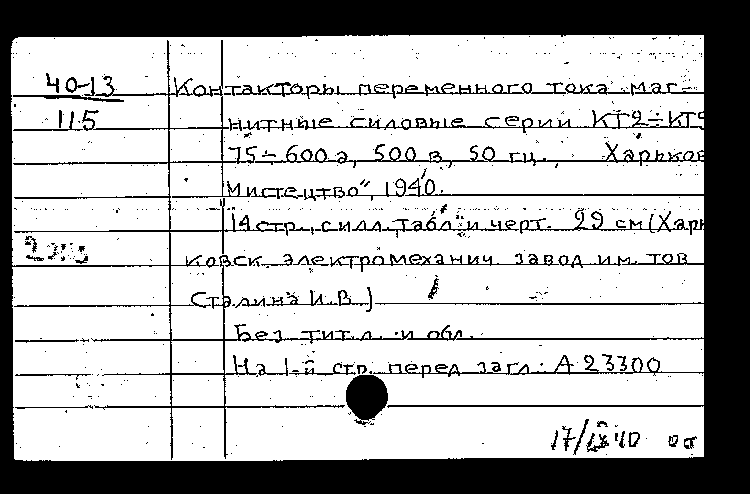 40-13
115
Контакторы переменного тока маг-
нитные силовые серии КТ2÷КТ5
75÷600 а, 500 в, 50 гц., Харьков
Мистецтво", 1940.
14 стр., с илл. табл. и черт. 29 см (Харь
ковск. электромеханич. завод им. тов
Сталина И.В.)
Без тит.л. и обл.
На 1-й стр. перед загл: А 23300
17/IX 40